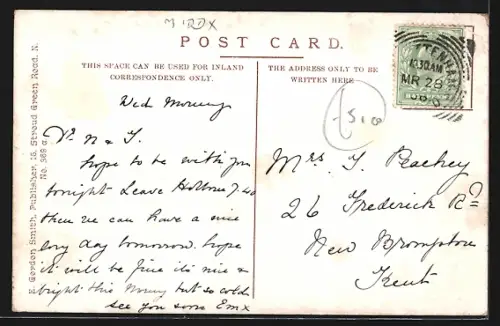 MIDDX
POST CARD.
THIS SPACE CAN BE USED FOR INLAND
CORRESPONDENCE ONLY.
THE ADDRESS ONLY TO BE
WRITTEN HERE
Gordon Smith, Publisher, 15, Stroud Green Road, N.
No. 368
Wed Morning
Dr N & T.
hope to be with you
tonight Leave Holborn 7.40
then we can have a nice
long day tomorrow. hope
it will be fine its nice &
bright this Morng but so cold
see you soon Em x
£5.0
10.30AM
MR 28
06
Mrs. T. Peachey
26 Frederick Rd
New Brompton
Kent